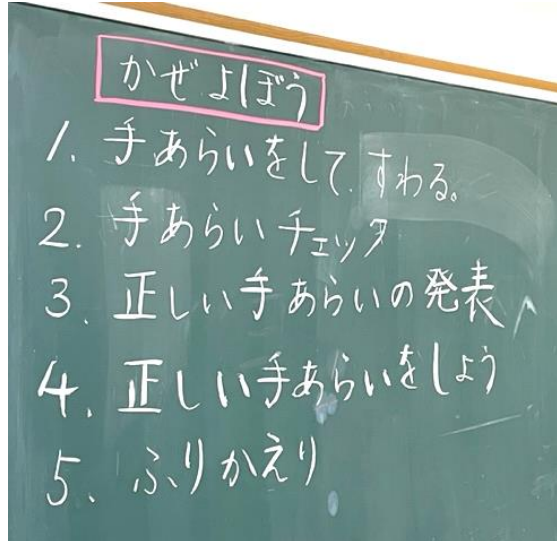 かぜよぼう
1. 手あらいをして、すわる。
2. 手あらいチェック
3. 正しい手あらいの発表
4. 正しい手あらいをしよう
5. ふりかえり